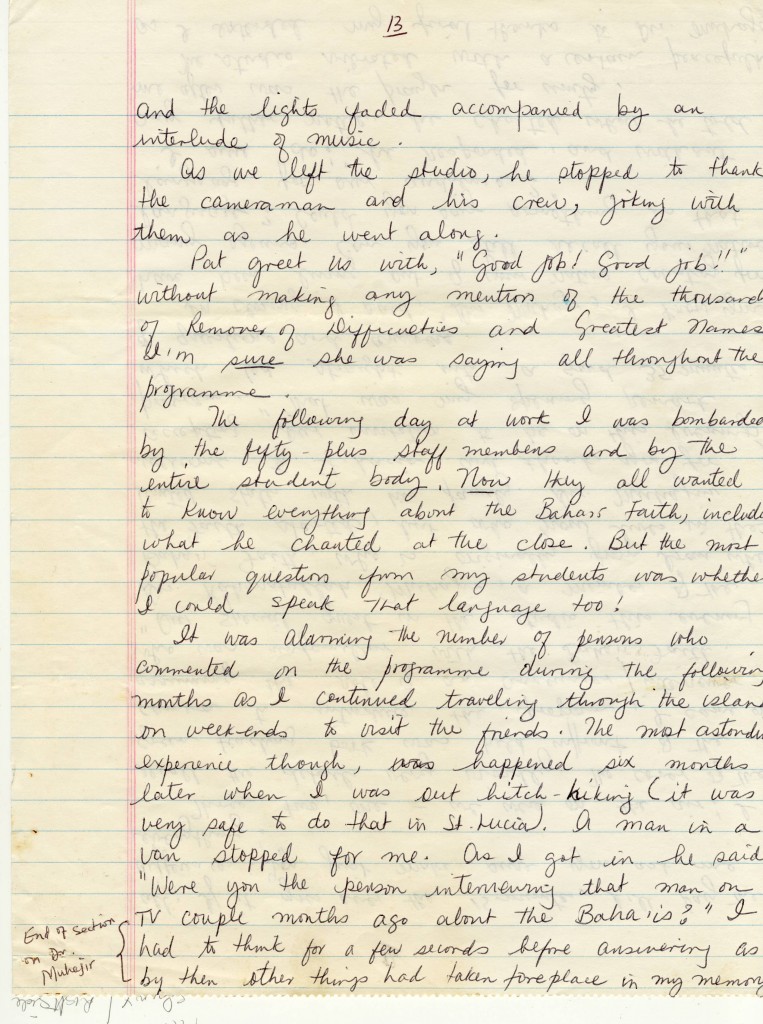 13
and the lights faded accompanied by an
interlude of music.
As we left the studio, he stopped to thank
the cameraman and his crew, joking with
them as he went along.
Pat greet us with, "Good job! Good job!!"
without making any mention of the thousand
of Remover of Difficulties and Greatest Names
I'm sure she was saying all throughout the
programme.
The following day at work I was bombarded
by the fifty-plus staff members and by the
entire student body. Now they all wanted
to know everything about the Baha'is Faith, includ
what he chanted at the close. But the most
popular question from my students was whethe
I could speak that language too!
It was alarming the number of persons who
commented on the programme during the following
months as I continued traveling through the islan
on week-ends to visit the friends. The most astondi
experience though, was happened six months
later when I was out hitch-hiking (it was
very safe to do that in St. Lucia). A man in a
van stopped for me. As I got in he said
"Were you the person interviewing that man on
TV couple months ago about the Baha'is?" I
had to think for a few seconds before answering as
by then other things had taken foreplace in my memory
End of section
on Dr.
Muhajir